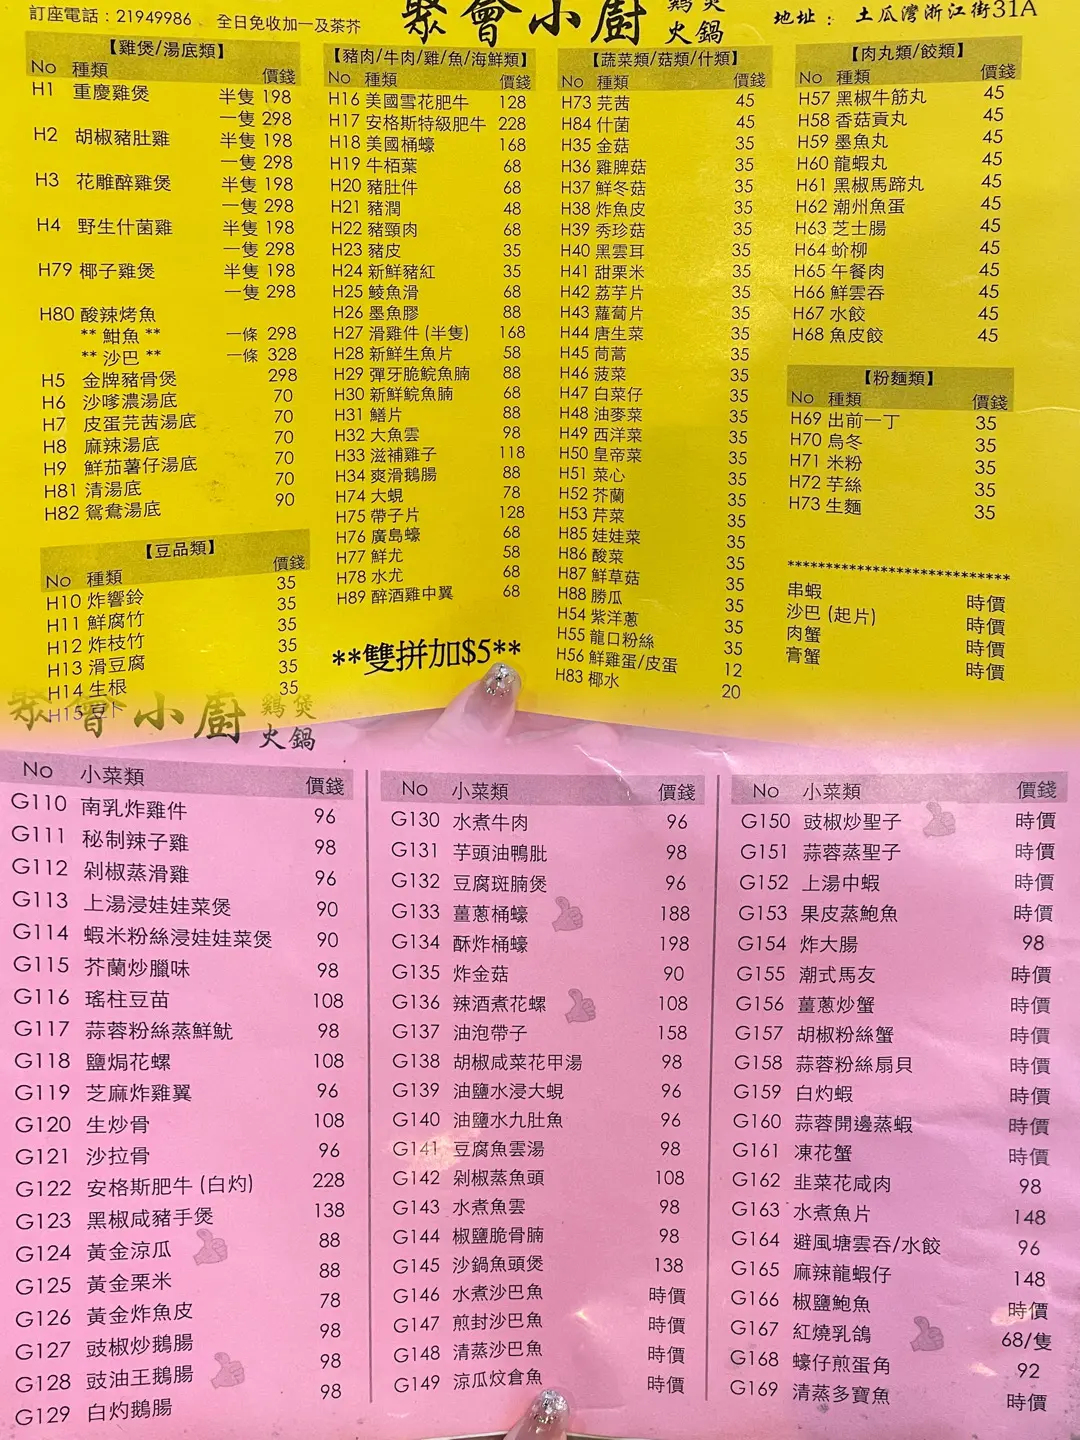 訂座電話：21949986 全日免收加一及茶芥
聚會小廚 鷄煲火鍋
地址：土瓜灣浙江街31A
【雞煲/湯底類】
No 種類 價錢
H1 重慶雞煲 半隻 198
一隻 298
H2 胡椒豬肚雞 半隻 198
一隻 298
H3 花雕醉雞煲 半隻 198
一隻 298
H4 野生什菌雞 半隻 198
一隻 298
H79 椰子雞煲 半隻 198
一隻 298
H80 酸辣烤魚
** 魽魚 ** 一條 298
** 沙巴 ** 一條 328
H5 金牌豬骨煲 298
H6 沙嗲濃湯底 70
H7 皮蛋芫茜湯底 70
H8 麻辣湯底 70
H9 鮮茄薯仔湯底 70
H81 清湯底 70
H82 鴛鴦湯底 90
【豆品類】
No 種類 價錢
H10 炸響鈴 35
H11 鮮腐竹 35
H12 炸枝竹 35
H13 滑豆腐 35
H14 生根 35
H15 豆卜 35
【豬肉/牛肉/雞/魚/海鮮類】
No 種類 價錢
H16 美國雪花肥牛 128
H17 安格斯特級肥牛 228
H18 美國桶蠔 168
H19 牛栢葉 68
H20 豬肚件 68
H21 豬潤 48
H22 豬頸肉 68
H23 豬皮 35
H24 新鮮豬紅 35
H25 鯪魚滑 68
H26 墨魚膠 88
H27 滑雞件 (半隻) 168
H28 新鮮生魚片 58
H29 彈牙脆鯇魚腩 88
H30 新鮮鯇魚腩 68
H31 鱔片 88
H32 大魚雲 98
H33 滋補雞子 118
H34 爽滑鵝腸 88
H74 大蜆 78
H75 帶子片 128
H76 廣島蠔 68
H77 鮮尤 58
H78 水尤 68
H89 醉酒雞中翼 68
**雙拼加$5**
【蔬菜類/菇類/什類】
No 種類 價錢
H73 芫茜 45
H84 什菌 45
H35 金菇 35
H36 雞脾菇 35
H37 鮮冬菇 35
H38 炸魚皮 35
H39 秀珍菇 35
H40 黑雲耳 35
H41 甜栗米 35
H42 荔芋片 35
H43 蘿蔔片 35
H44 唐生菜 35
H45 茼蒿 35
H46 菠菜 35
H47 白菜仔 35
H48 油麥菜 35
H49 西洋菜 35
H50 皇帝菜 35
H51 菜心 35
H52 芥蘭 35
H53 芹菜 35
H85 娃娃菜 35
H86 酸菜 35
H87 鮮草菇 35
H88 勝瓜 35
H54 紫洋蔥 35
H55 龍口粉絲 35
H56 鮮雞蛋/皮蛋 12
H83 椰水 20
【肉丸類/餃類】
No 種類 價錢
H57 黑椒牛筋丸 45
H58 香菇貢丸 45
H59 墨魚丸 45
H60 龍蝦丸 45
H61 黑椒馬蹄丸 45
H62 潮州魚蛋 45
H63 芝士腸 45
H64 蚧柳 45
H65 午餐肉 45
H66 鮮雲吞 45
H67 水餃 45
H68 魚皮餃 45
【粉麵類】
No 種類 價錢
H69 出前一丁 35
H70 烏冬 35
H71 米粉 35
H72 芋絲 35
H73 生麵 35
**************************
串蝦 時價
沙巴 (起片) 時價
肉蟹 時價
膏蟹 時價
聚會小廚 鷄煲火鍋
No 小菜類 價錢
G110 南乳炸雞件 96
G111 秘制辣子雞 98
G112 剁椒蒸滑雞 96
G113 上湯浸娃娃菜煲 90
G114 蝦米粉絲浸娃娃菜煲 90
G115 芥蘭炒臘味 98
G116 瑤柱豆苗 108
G117 蒜蓉粉絲蒸鮮魷 98
G118 鹽焗花螺 108
G119 芝麻炸雞翼 96
G120 生炒骨 108
G121 沙拉骨 96
G122 安格斯肥牛 (白灼) 228
G123 黑椒咸豬手煲 138
G124 黃金涼瓜 88
G125 黃金栗米 88
G126 黃金炸魚皮 78
G127 豉椒炒鵝腸 98
G128 豉油王鵝腸 98
G129 白灼鵝腸 98
No 小菜類 價錢
G130 水煮牛肉 96
G131 芋頭油鴨肶 98
G132 豆腐斑腩煲 96
G133 薑蔥桶蠔 188
G134 酥炸桶蠔 198
G135 炸金菇 90
G136 辣酒煮花螺 108
G137 油泡帶子 158
G138 胡椒咸菜花甲湯 98
G139 油鹽水浸大蜆 96
G140 油鹽水九肚魚 96
G141 豆腐魚雲湯 98
G142 剁椒蒸魚頭 108
G143 水煮魚雲 98
G144 椒鹽脆骨腩 98
G145 沙鍋魚頭煲 138
G146 水煮沙巴魚 時價
G147 煎封沙巴魚 時價
G148 清蒸沙巴魚 時價
G149 涼瓜炆倉魚 時價
No 小菜類 價錢
G150 豉椒炒聖子 時價
G151 蒜蓉蒸聖子 時價
G152 上湯中蝦 時價
G153 果皮蒸鮑魚 時價
G154 炸大腸 98
G155 潮式馬友 時價
G156 薑蔥炒蟹 時價
G157 胡椒粉絲蟹 時價
G158 蒜蓉粉絲扇貝 時價
G159 白灼蝦 時價
G160 蒜蓉開邊蒸蝦 時價
G161 凍花蟹 時價
G162 韭菜花咸肉 98
G163 水煮魚片 148
G164 避風塘雲吞/水餃 96
G165 麻辣龍蝦仔 148
G166 椒鹽鮑魚 時價
G167 紅燒乳鴿 68/隻
G168 蠔仔煎蛋角 92
G169 清蒸多寶魚 時價